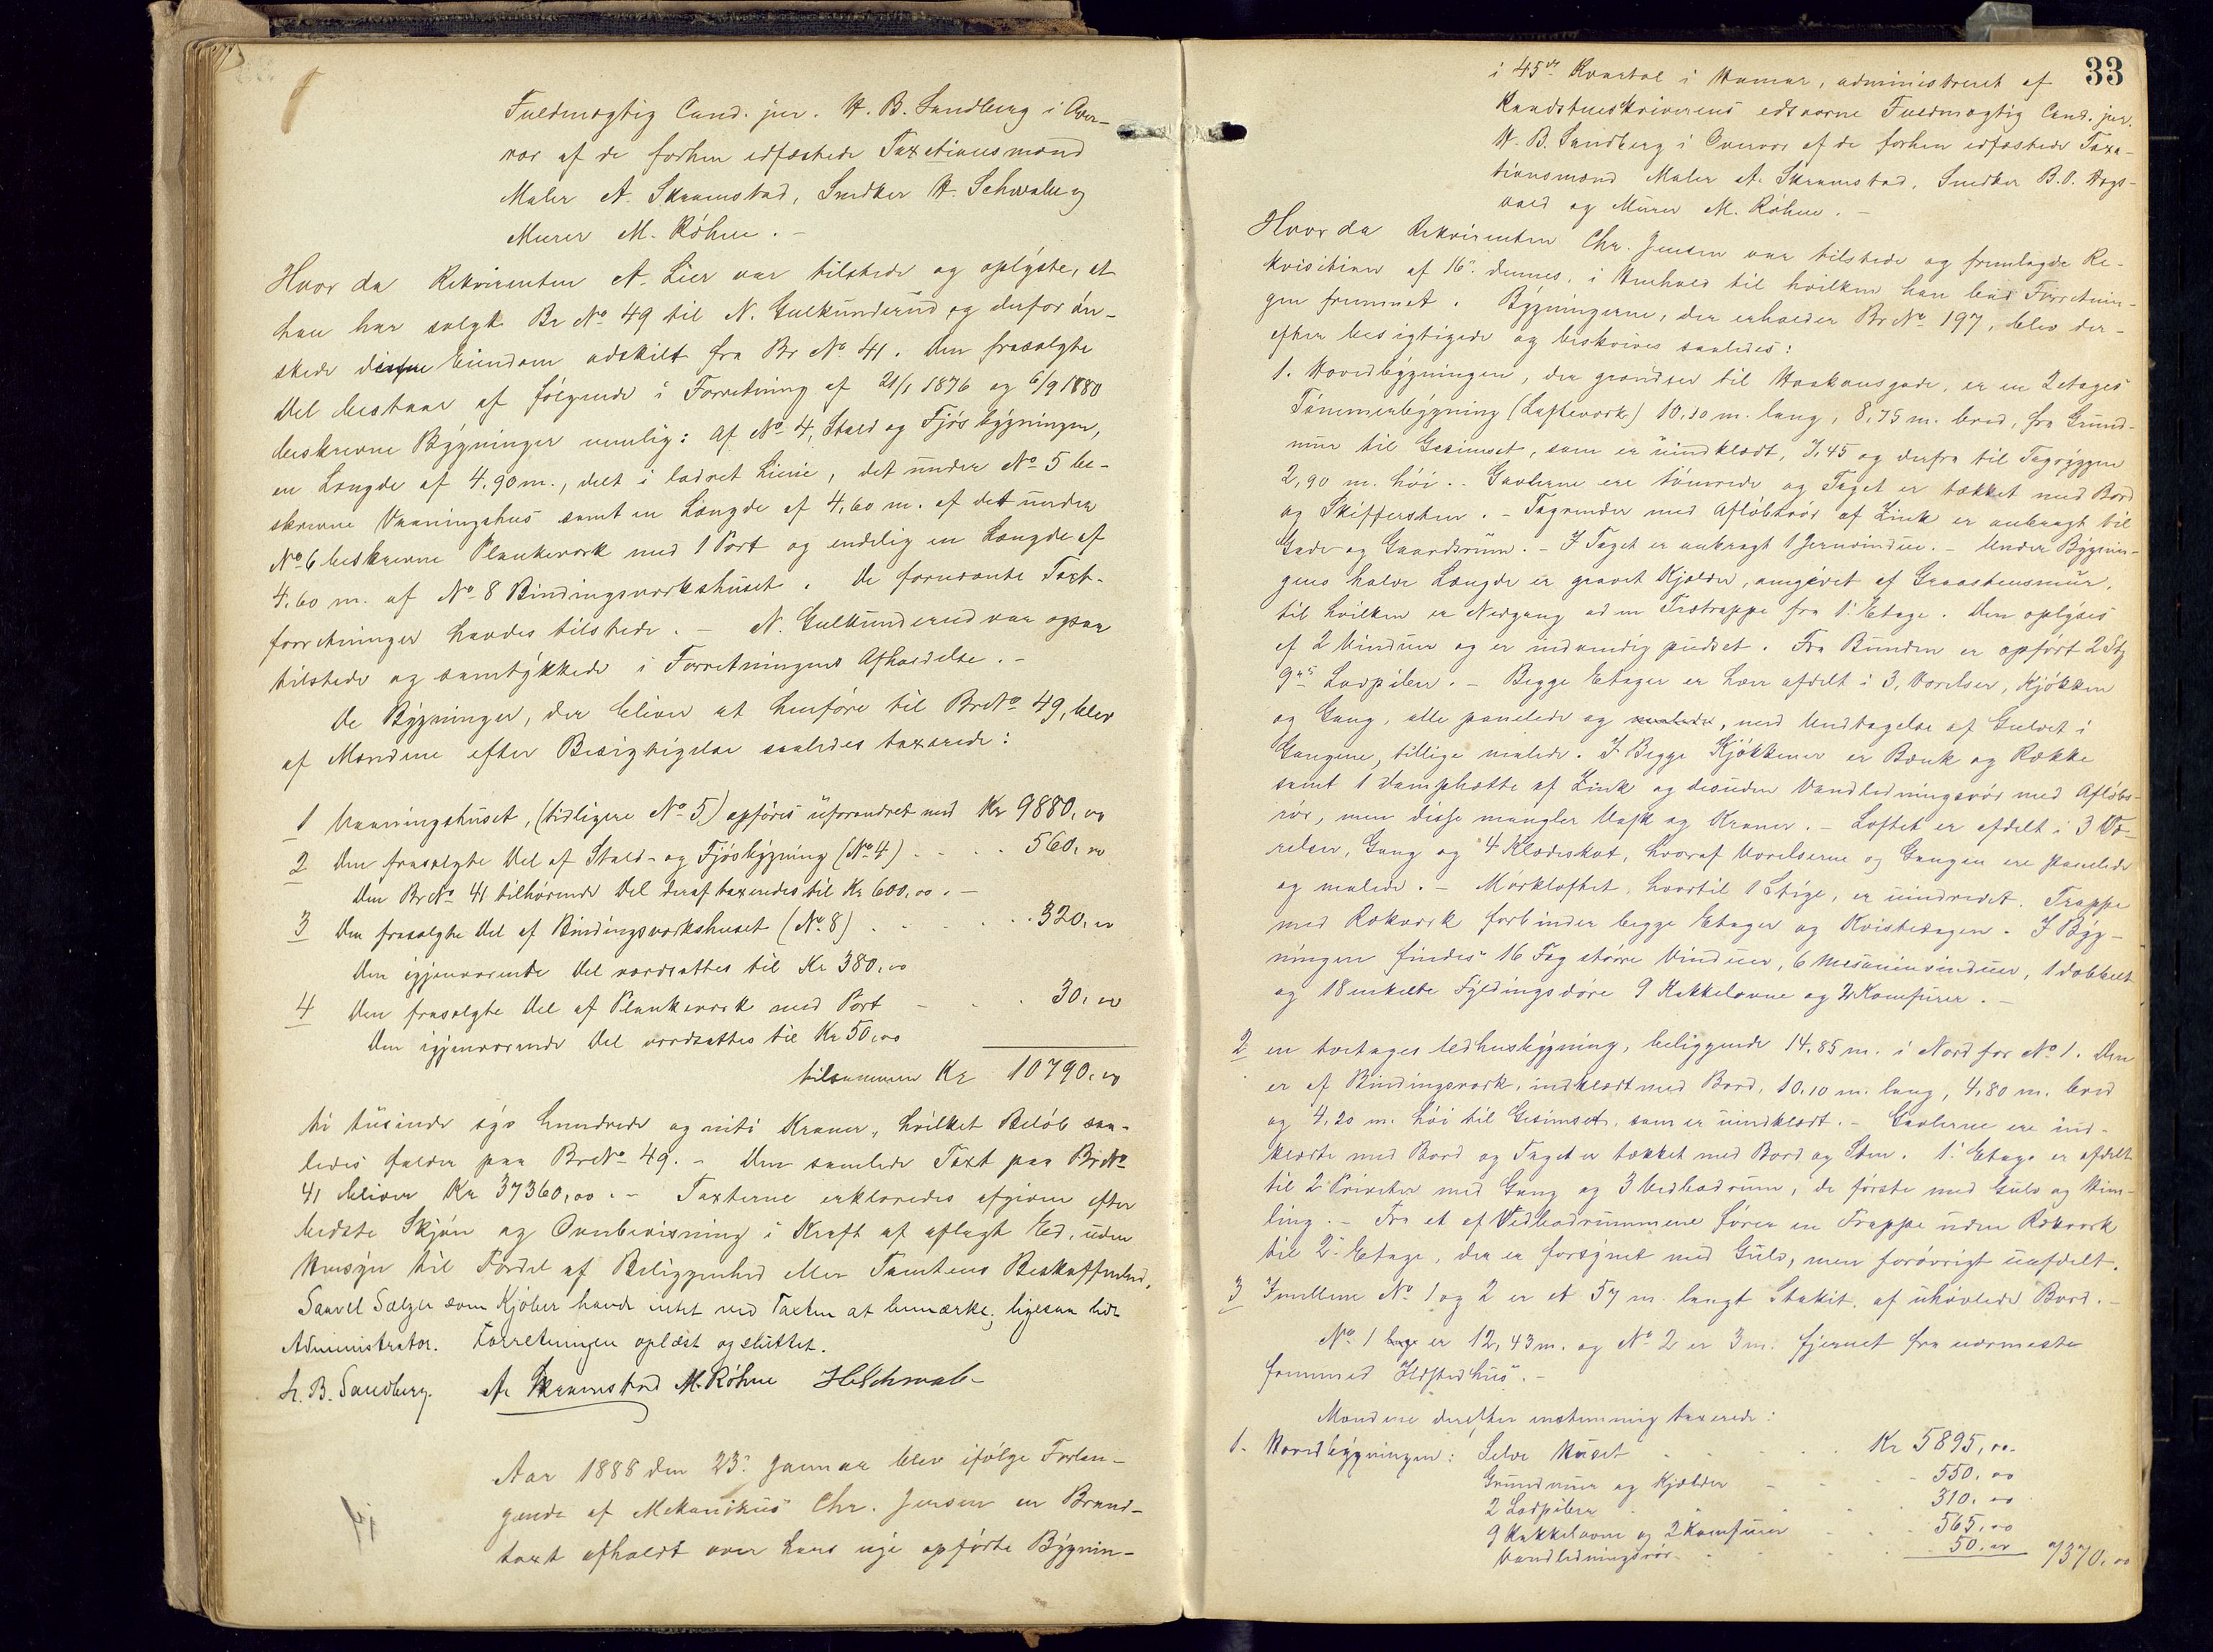 Fuldmægtig Cand. jur. H. B. Sandberg i Over-
vær af de forhen edfæstede Taxationsmænd
Maler A. Skramstad, Snedker H. Schwalb og
Murer M. Röhne. -
Hvor da Rekvirenten A. Lier var tilstede og oplyste, at
han har solgt Br No 49 til N. Gulkunderud og derfor øn-
skede denne Eiendom adskilt fra Br No 41. Den frasolgte
Del bestaar af følgende i Forretning af 21/1 1876 og 6/9 1880
beskrevne Bygninger nemlig: Af No 4, Stald og Fjøsbygningen,
en Længde af 4.90 m., delt i lodret Linie, det under No 5 be-
skrevne Vaaningshus samt en Længde af 4,60 m. af det under
No 6 beskrevne Plankeværk med 1 Port og endelig en Længde af
4.60 m. af No 8 Bindingsværkshuset. De fornævnte Taxt-
forretninger havdes tilstede. - N. Gulkunderud var ogsaa
tilstede og samtykkede i Forretningens Afholdelse. -
De Bygninger, der bliver at henføre til Br No 49, blev
af Mændene efter Besigtigelse saaledes taxerede:
1 Vaaningshuset, (tidligere No 5) opføres uforandret med Kr 9880,00
2 Den frasolgte Del af Stald- og Fjøsbygning (No 4) . . . 560,00
Den Br No 41 tilhørende Del deraf taxeredes til Kr 600,00. -
3 Den frasolgte Del af Bindingsværkshuset (No 8) . . . 320,00
Den igjenværende Del værdsattes til Kr 380,00
4 Den frasolgte Del af Plankeværk med Port - . . 30,00
Den igjenværende Del værdsattes til Kr 50,00
tilsammen Kr 10790,00
ti tusinde syv hundrede og niti Kroner, hvilket Beløb saa-
ledes falder paa Br No 49. - Den samlede Taxt paa Br No
41 bliver Kr 37360,00. - Taxterne erklæredes afgivne efter
bedste Skjøn og Overbevisning i Kraft af aflagt Ed, uden
Hensyn til Fordel af Beliggenhed eller Tomtens Beskaffenhed.
Saavel Sælger som Kjøber havde intet ved Taxten at bemærke, ligesaa lidt
Administrator. Forretningen oplæst og sluttet.
H. B. Sandberg. A. Skramstad M. Röhne H Schwalb
Aar 1888 den 23. Januar blev ifølge Forlan-
gende af Mekanikus Chr. Jensen en Brand-
taxt afholdt over hans nye opførte Bygnin-
33
i 45de Kvartal i Hamar, administreret af
Raadstueskriverens edsvorne Fuldmægtig Cand. jur.
H. B. Sandberg i Overvær af de forhen edfæstede Taxa-
tionsmænd Maler A. Skramstad, Snedker B. O. Hogs-
vold og Murer M. Röhne. -
Hvor da Rekvirenten Chr. Jensen var tilstede og fremlagde Re-
kvisitionen af 16. dennes, i Henhold til hvilken han bad Forretnin-
gen fremmet. Bygningerne, der erholder Br No 197, blev der-
efter besigtigede og beskrives saaledes:
1. Hovedbygningen, der grændser til Haakonsgade, er en 2 etages
Tømmerbygning (Lafteværk) 10,10 m. lang, 8,75 m. bred, fra Grund-
mur til Gesimset, som er uindklædt, 7,45 og derfra til Tagryggen
2,90 m. høi. - Gavlerne ere tømrede og Taget er tækket med Bord
og Skiffersten. - Tagrender med Afløbsrør af Zink er anbragt til
Gade og Gaardsrum. - I Taget er anbragt 1 Jernvindue. - Under Bygnin-
gens halve Længde er gravet Kjælder, omgivet af Graastensmur,
til hvilken er Nedgang ad en Trætrappe fra 1. Etage. Den oplyses
af 2 Vinduer og er indvendig pudset. Fra Bunden er opført 2 Stk
9" Lodpiber. - Begge Etager er hver afdelt i 3, Værelser, Kjøkken
og Gang, alle panelede og malede, med Undtagelse af Gulvet i
Gangene, tillige malede. I Begge Kjøkkener er Bænk og Række
samt 1 Damphætte af Zink og desuden Vandledningsrør med Afløbs-
rør, men disse mangler Vask og Kraner. - Loftet er afdelt i 3 Væ-
relser, Gang og 4 Klædeskot, hvoraf Værelserne og Gangen ere panelede
og malede. - Mørkloftet, hvortil 1 Stige, er uindredet. Trappe
med Rækværk forbinder begge Etager og Kvistetagen. I Byg-
ningen findes 16 Fag større Vinduer, 6 Mesaninvinduer, 1 dobbelt
og 18 enkelte Fyldingsdøre 9 Kakkelovne og 2 Komfurer. -
2 en toetages Udhusbygning, beliggende 14,85 m. i Nord for No 1. Den
er af Bindingsværk, indklædt med Bord, 10,10 m. lang, 4,80 m. bred
og 4,20 m. høi til Gesimset, som er uindklædt. - Gavlerne ere ind-
klædte med Bord og Taget er tækket med Bord og Sten. 1. Etage er afdelt
til 2 Priveter med Gang og 3 Vedbodrum, de første med Gulv og Him-
ling. - Fra et af Vedbodrummene fører en Trappe uden Rækværk
til 2. Etage, der er forsynet med Gulv, men forøvrigt uafdelt.
3 Imellem No 1 og 2 er et 57 m. langt Stakit, af uhøvlede Bord. -
No 1 er 12,43 m. og No 2 er 3 m. fjernet fra nærmeste
fremmed Ildstedhus. -
Mændene derefter enstemmig taxerede:
1. Hovedbygningen: Selve Huset . . . Kr 5895,00
Grundmur og Kjælder - . . - 550,00
2 Lodpiber . . . 310,00
9 Kakkelovne og 2 Komfurer . . 565,00
Vandledningsrør . . . 50,00 7370,00